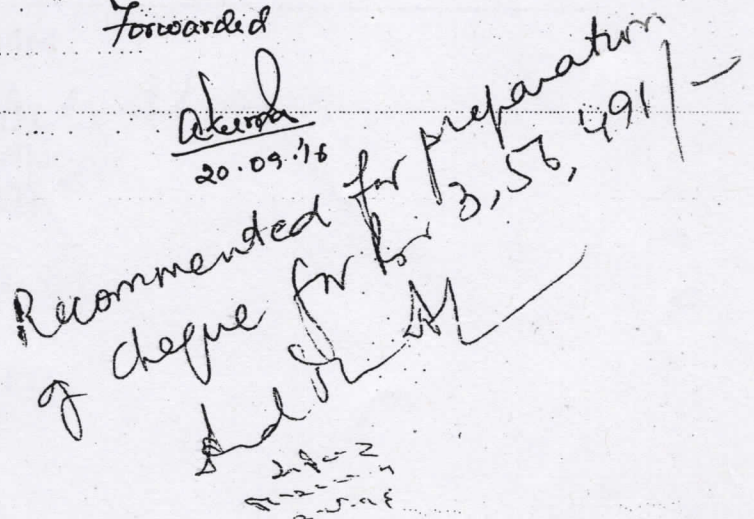 Forwarded
20.09.'16
Recommended for preparation
of cheque for Rs 3,56,491/-